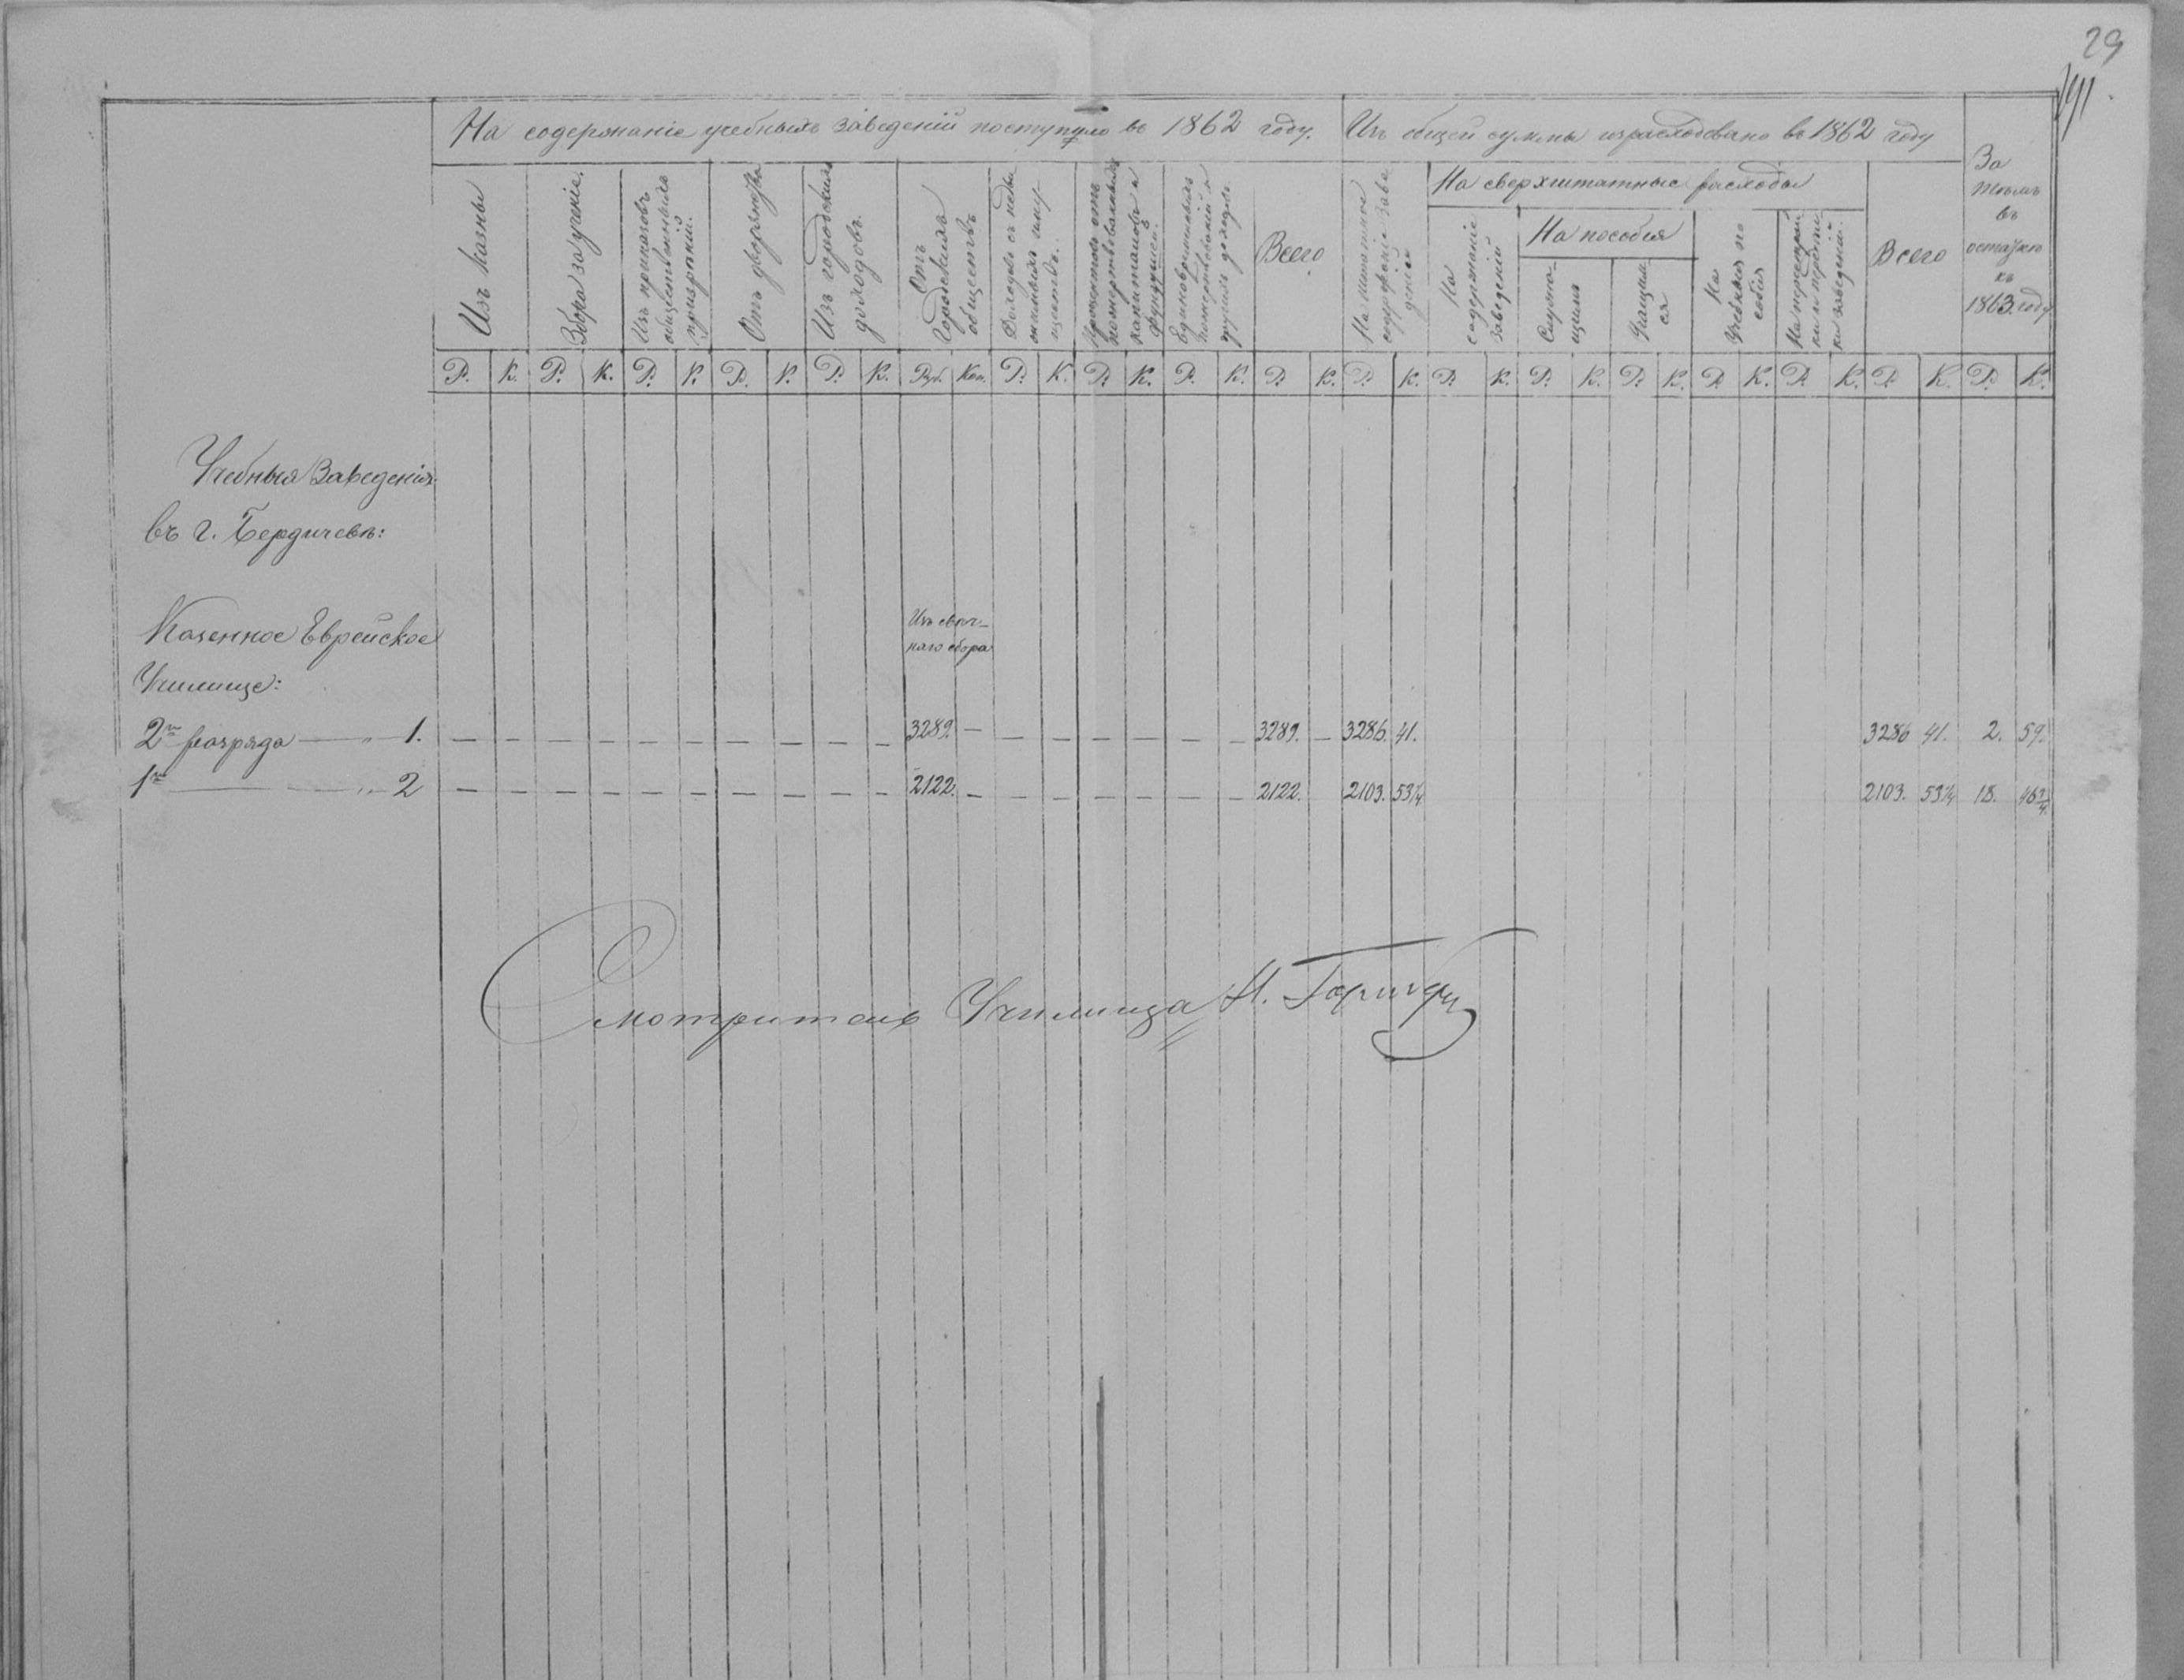 29
На содержаніе учебныхъ заведеній поступило въ 1862 году.
Изъ общей суммы израсходовано въ 1862 году
За
тѣмъ
въ
остаткѣ
къ
1863 году
Изъ казны
Сбора за ученіе.
Изъ приказовъ
общественныхъ
призрѣній.
Отъ дворянства
Изъ городскихъ
доходовъ.
Отъ
Городскихъ
обществъ
Доходовъ съ недви
жимыхъ иму
ществъ.
Процентовъ отъ
пожертвованныхъ
капиталовъ и
фундушей.
Единовременныхъ
пожертвованій и
другихъ доходовъ
Всего
На штатное
содержаніе заве
деній
На сверхштатные расходы
На
содержаніе
заведеній
На пособія
Служа-
щимъ
Учащим
ся
На
Учебныя по
собія
Всего
Р. К. Р. К. Р. К. Р. К. Р. К. Руб. Коп. Р. К. Р. К. Р. К. Р. К. Р. К. Р. К. Р. К. Р. К. Р. К. Р. К. Р. К. Р. К.
Учебныя Заведенія
въ г. Бердичевѣ:
Казенное Еврейское
Училище:
Изъ свѣч-
наго сбора
2го разряда — „ 1. — — — — — — — — — — 3289. — — — — — — — 3289. — 3286. 41. 3286 41. 2. 59.
1го — — „ 2 — — — — — — — — — — 2122. — — — — — — — 2122. 2103. 53¼ 2103. 53¼ 18. 46¾
Смотритель Училища Н.